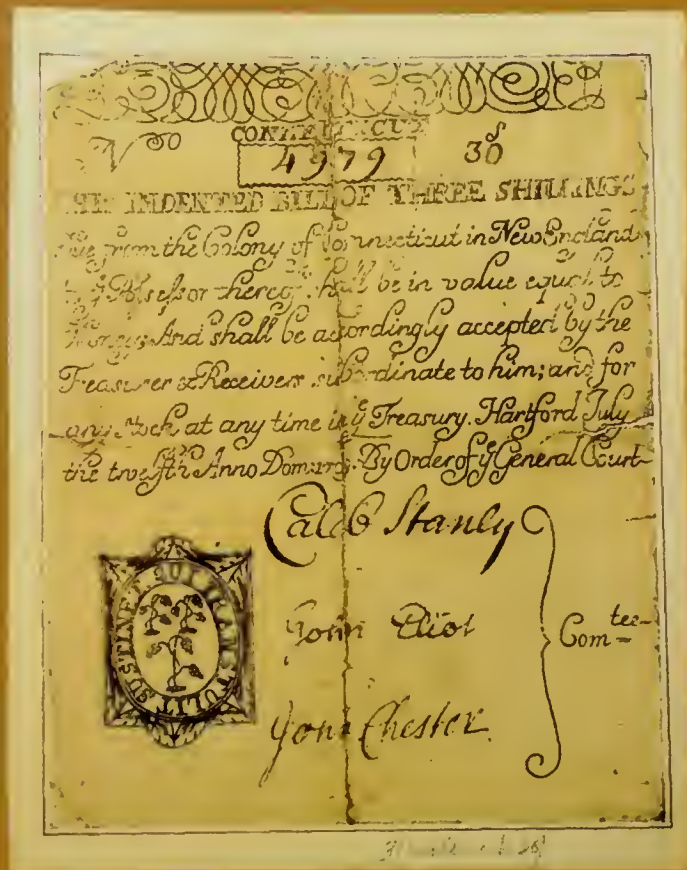 CONNECTICUT
No 4979 3s
THIS INDENTED BILL OF THREE SHILLINGS
due from the Colony of Connecticut in New England
to ye Possessor thereof shall be in value equal to
Money; And shall be accordingly accepted by the
Treasurer & Receivers subordinate to him; and for
any Stock at any time in ye Treasury. Hartford July
the twelfth Anno Dom: 1709. By Order of ye General Court
Caleb Stanly
John Eliot
John Chester
Com=tee
SUSTINET QUI TRANSTULIT